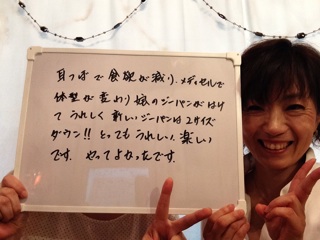 耳つぼで食欲が減り、メディセルで
体型が変わり娘のジーパンがはけ
てうれしく新しいジーパンは2サイズ
ダウン!! とってもうれしい、楽しい
です。やってよかったです。